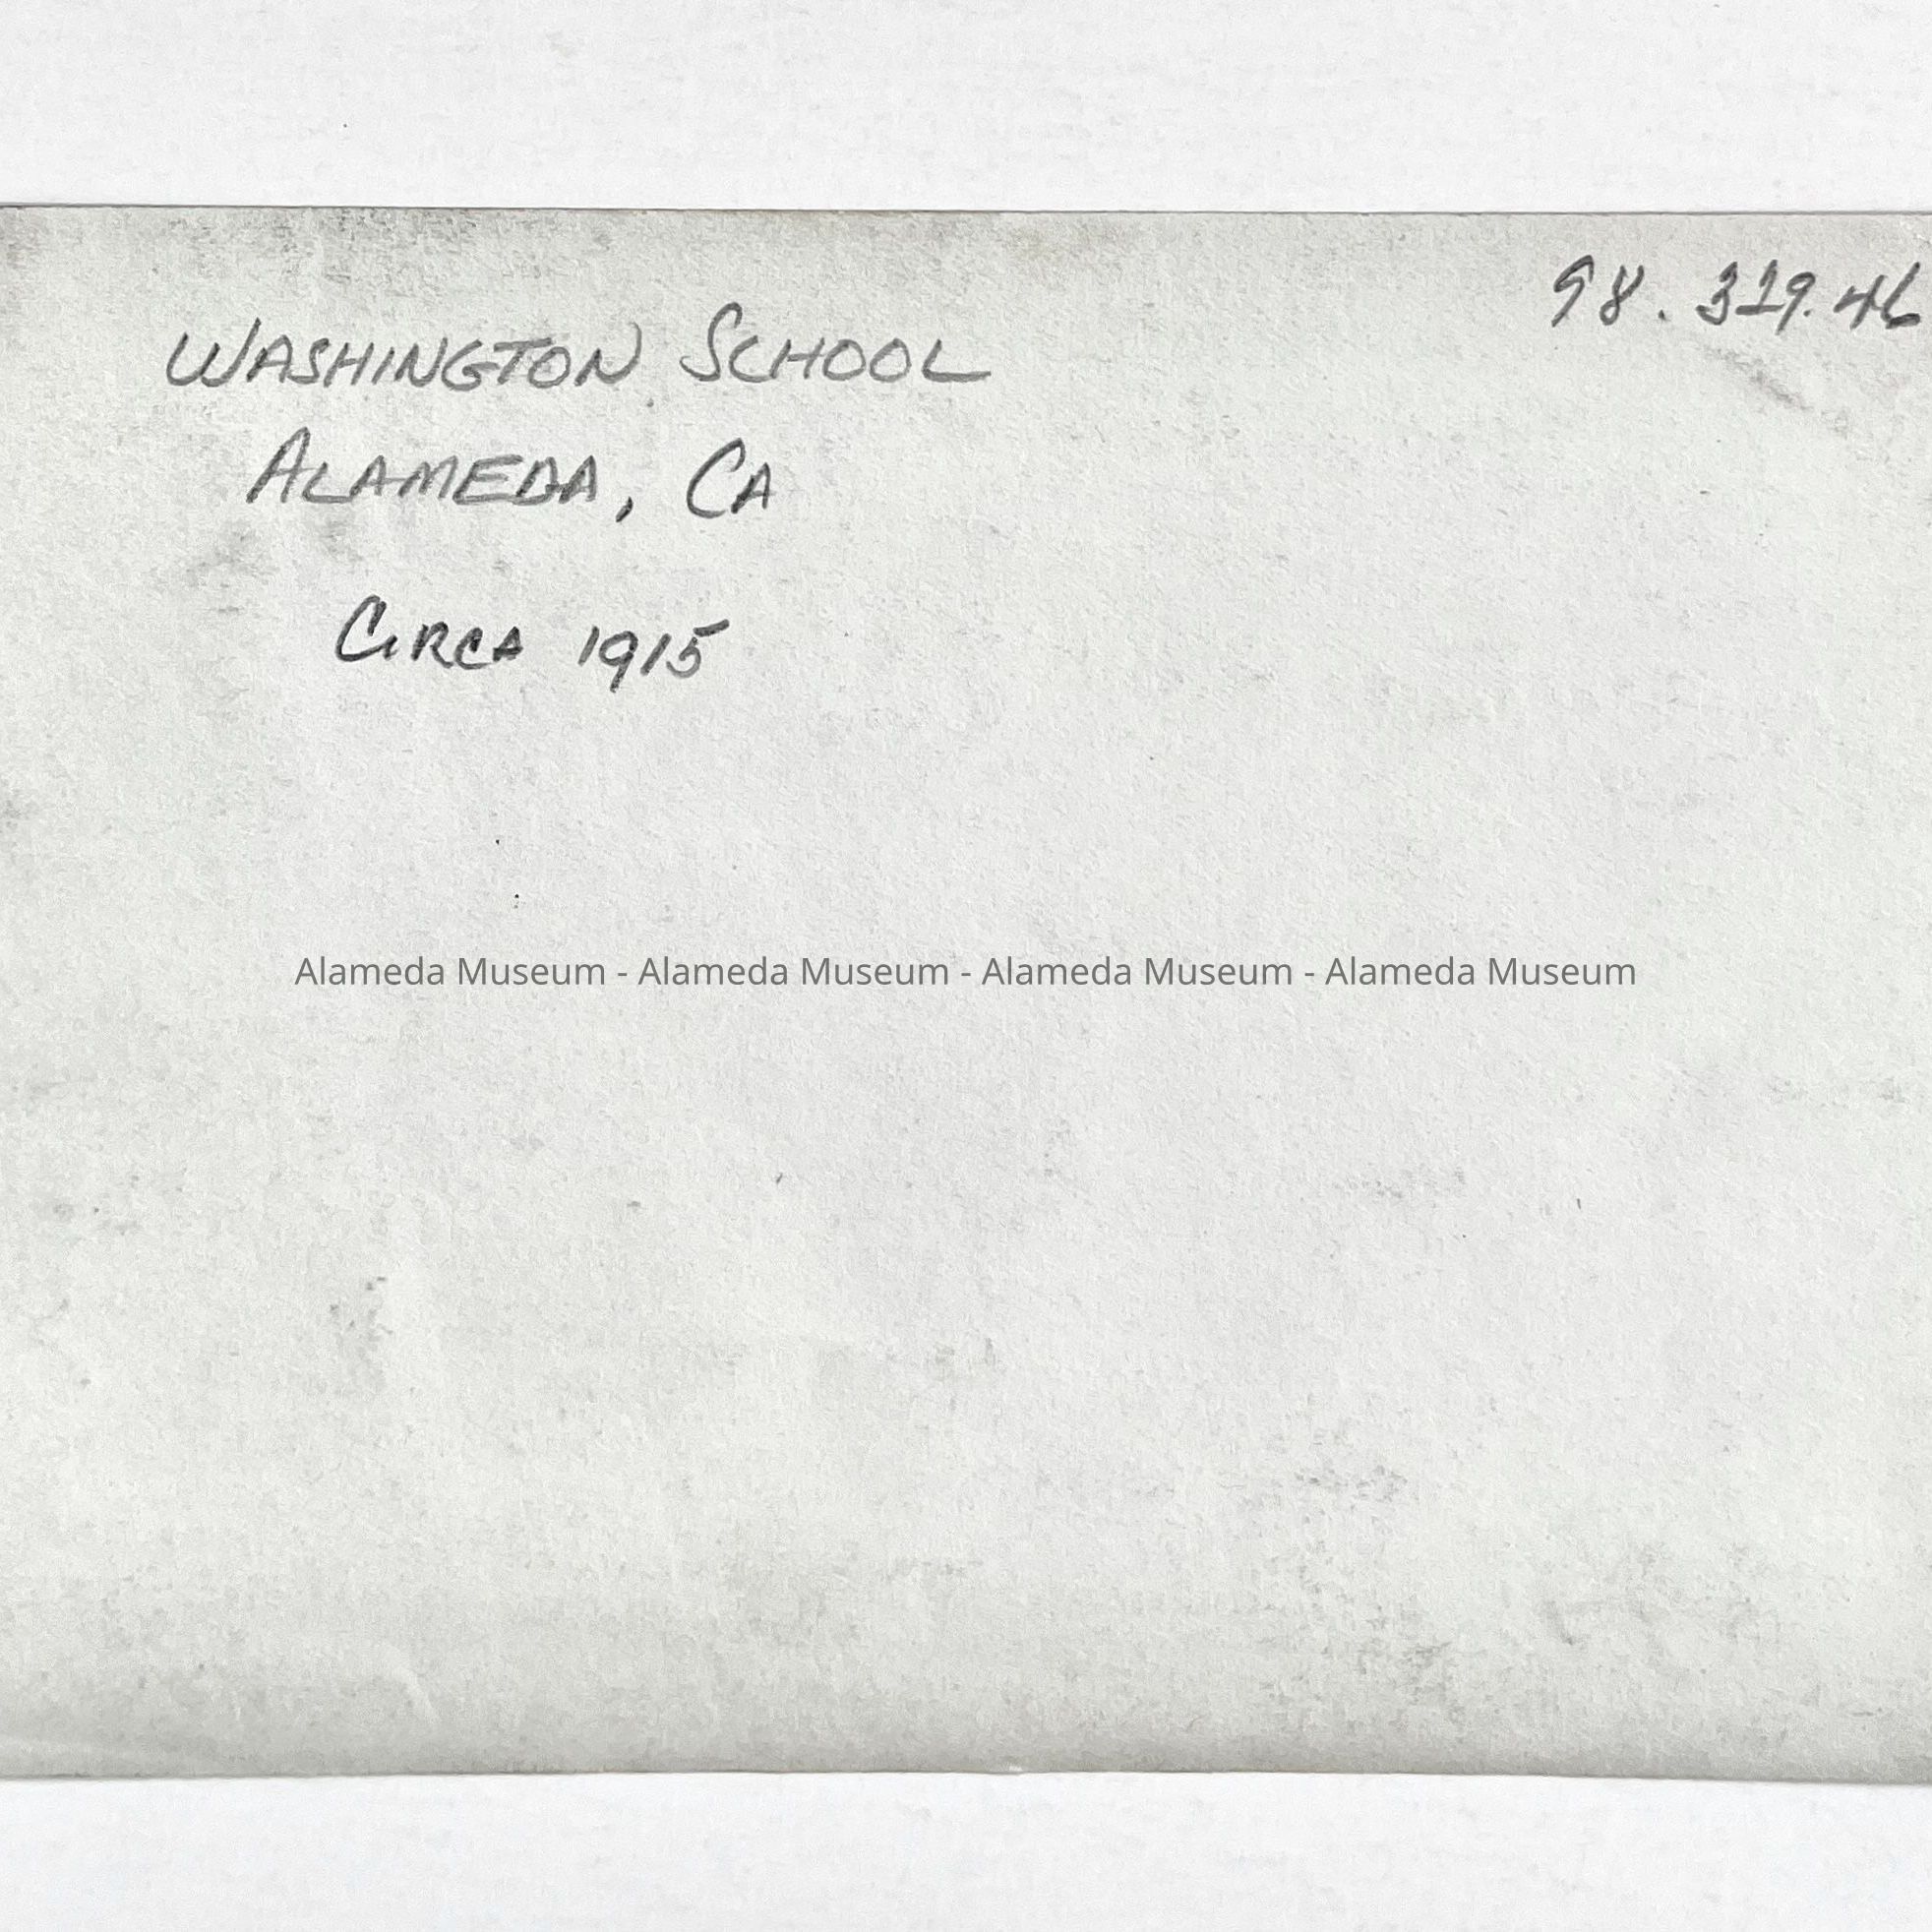 98.329.46
WASHINGTON SCHOOL
ALAMEDA, CA
CIRCA 1915
Alameda Museum - Alameda Museum - Alameda Museum - Alameda Museum